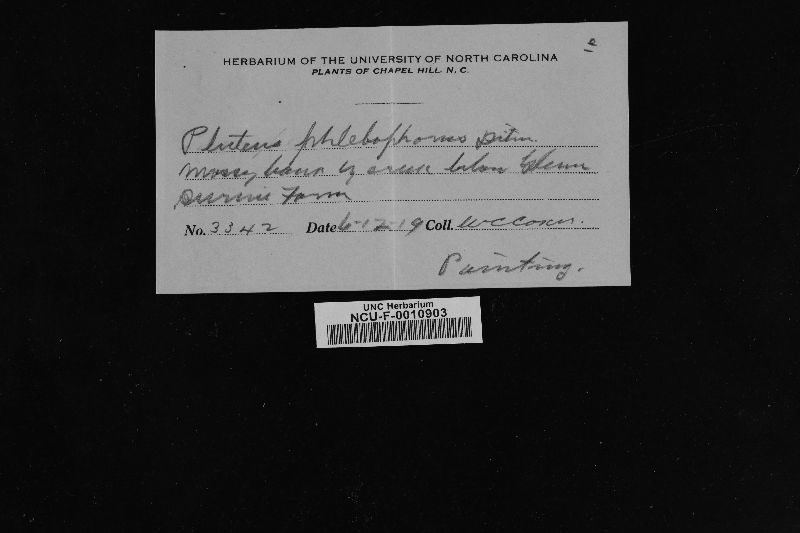 e
HERBARIUM OF THE UNIVERSITY OF NORTH CAROLINA
PLANTS OF CHAPEL HILL, N. C.
Pluteus phlebophorus Ditm.
Mossy bank by creek below Glenn
Farm
No. 3342 Date 6-12-19 Coll. W C Coker.
Painting.
UNC Herbarium
NCU-F-0010903